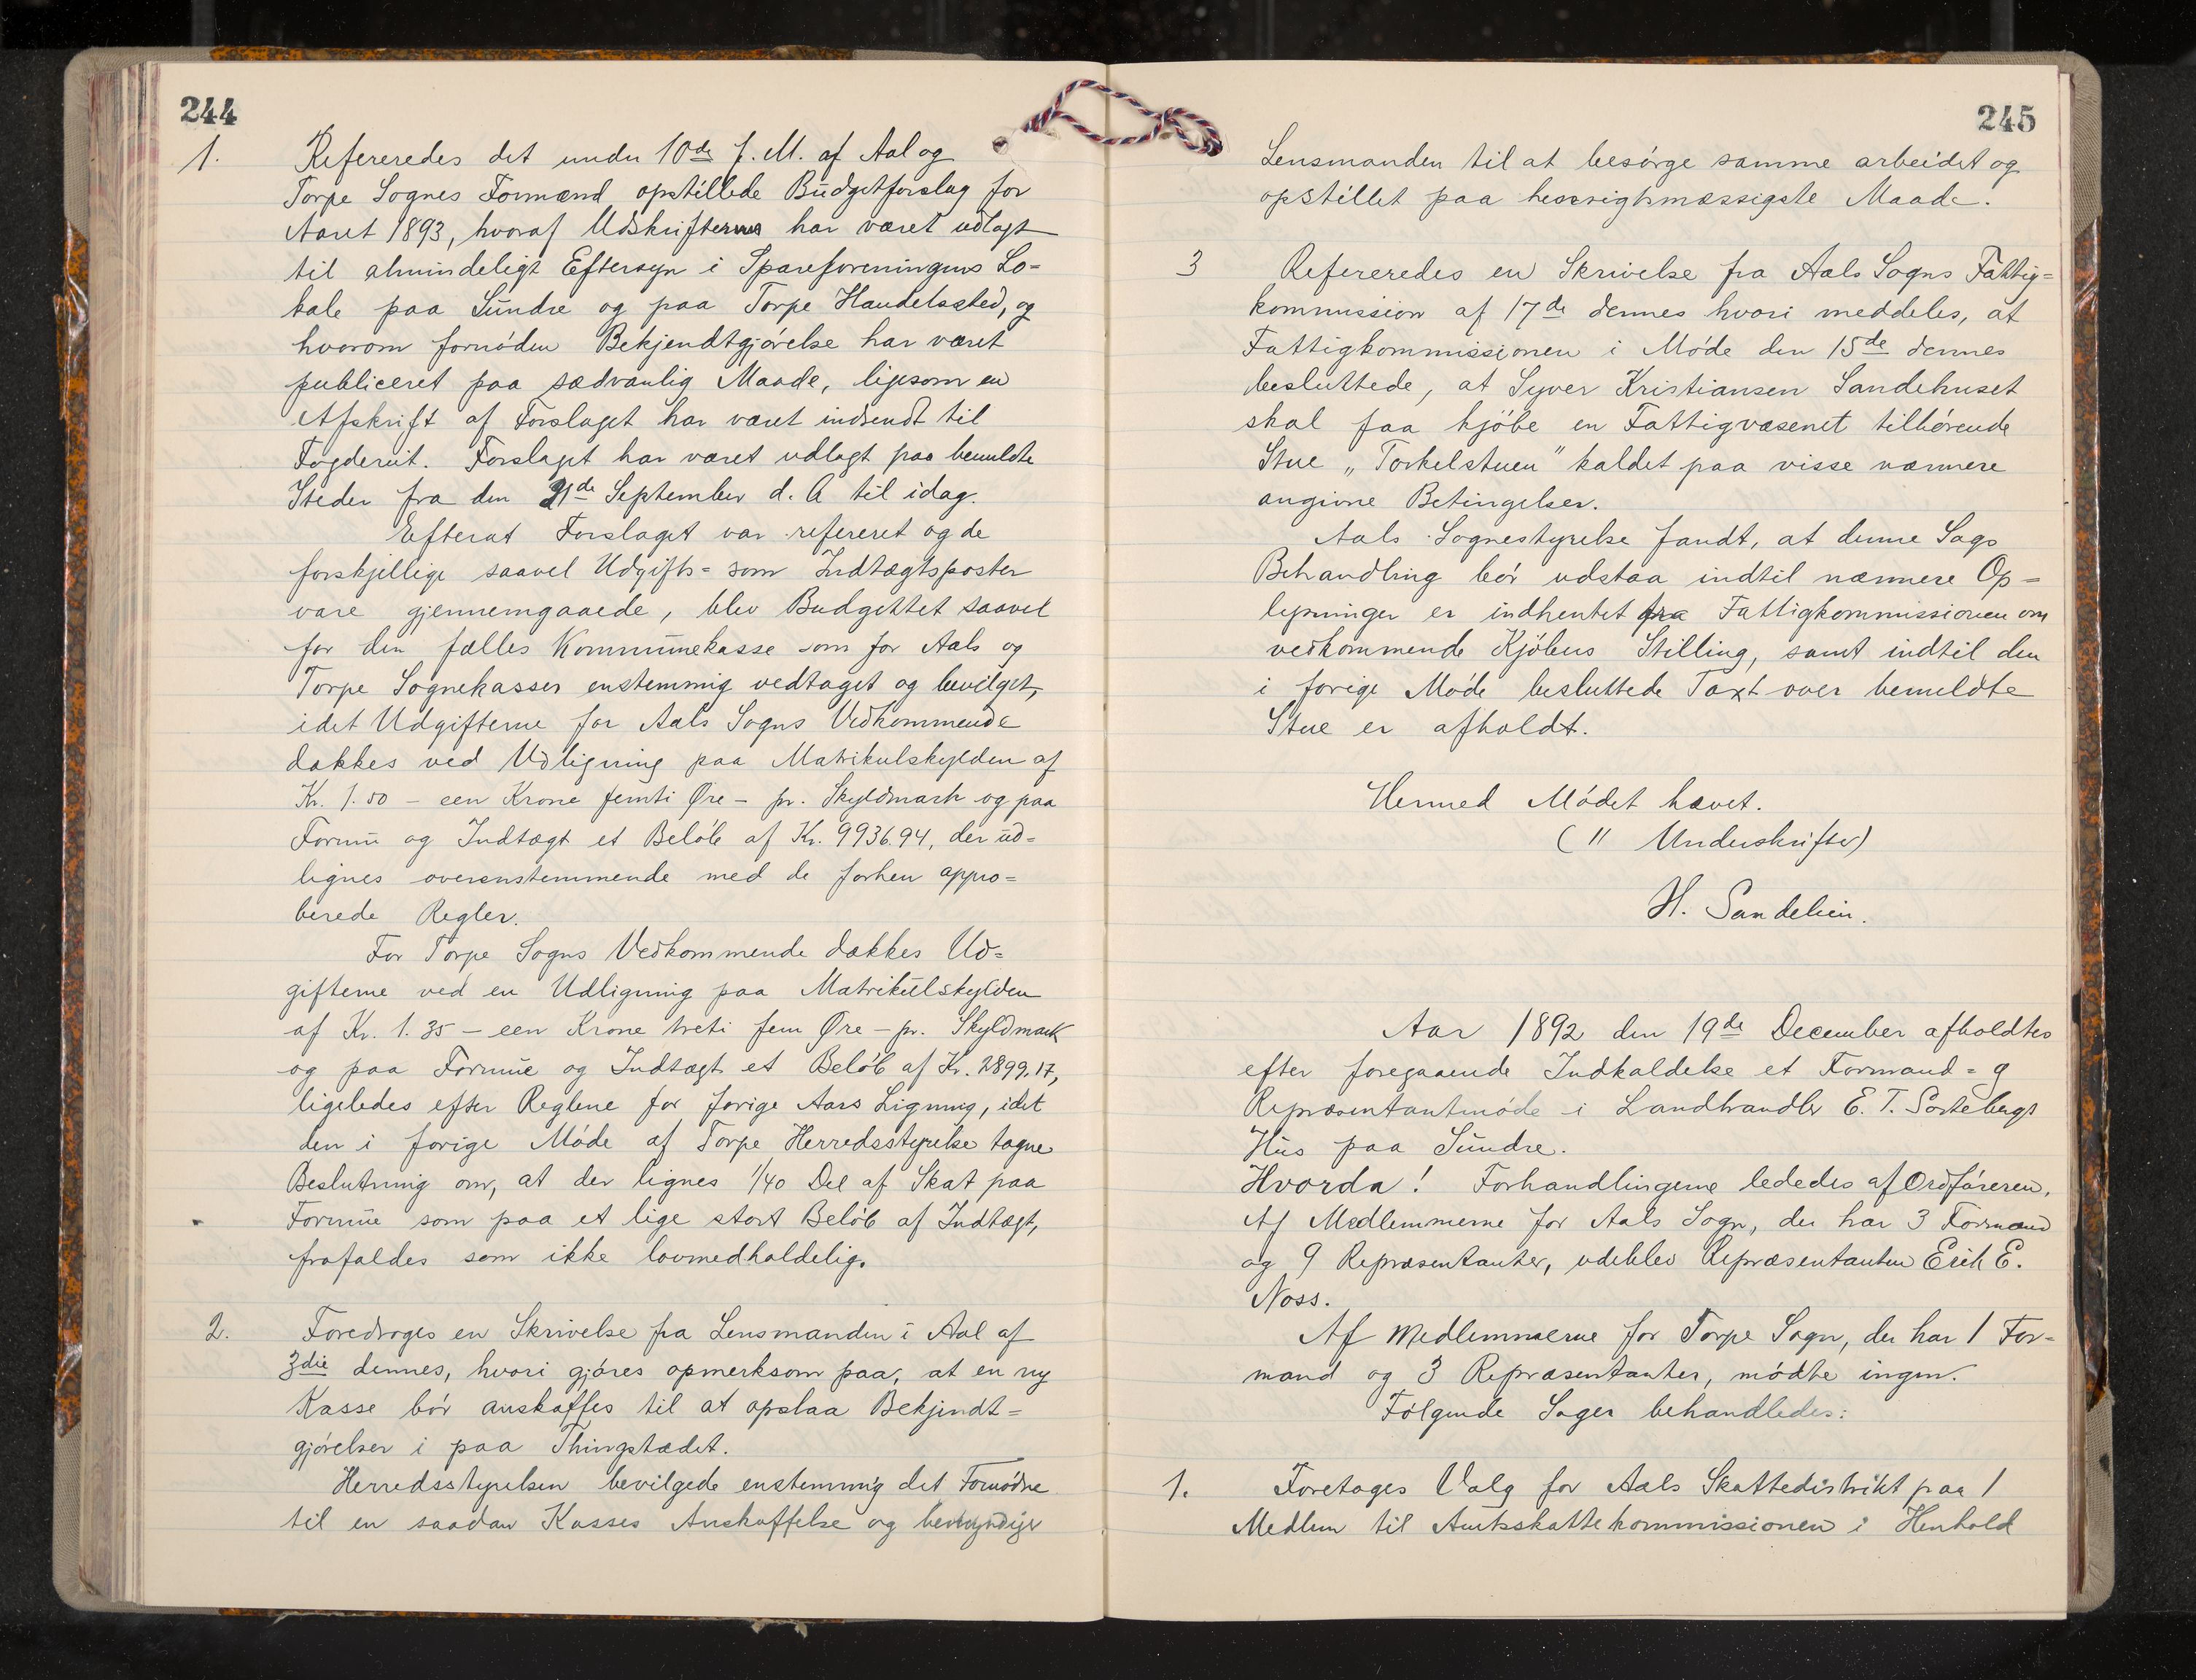 244
1. Refereredes det under 10de f. M. af Aal og
Torpe Sognes Formænd opstillede Budgetforslag for
Aaret 1893, hvoraf Udskrifterne har været udlagt
til almindeligt Eftersyn i Spareforeningens Lo=
kale paa Sundre og paa Torpe Handelssted, og
hvorom fornøden Bekjendtgjørelse har været
publiceret paa sædvanlig Maade, ligesom en
Afskrift af Forslaget har været indsendt til
Fogderiet. Forslaget har været udlagt paa bemeldte
Steder fra den 21de September d. A til idag.
Efterat Forslaget var refereret og de
forskjellige saavel Udgifts= som Indtægtsposter
vare gjennemgaaede, blev Budgettet saavel
for den fælles Kommunekasse som for Aals og
Torpe Sognekasser enstemmig vedtaget og bevilget,
idet Udgifterne for Aals Sogns Vedkommende
dækkes ved Udligning paa Matrikulskylden af
Kr. 1.50 – een Krone femti Øre – pr. Skyldmark og paa
Formue og Indtægt et Beløb af Kr. 9936.94, der ud=
lignes overenstemmende med de forhen appro=
berede Regler.
For Torpe Sogns Vedkommende dækkes Ud=
gifterne ved en Udligning paa Matrikulskylden
af Kr. 1.35 – een Krone treti fem Øre – pr. Skyldmark
og paa Formue og Indtægt et Beløb af Kr. 2899.17,
ligeledes efter Reglene for forige Aars Ligning, idet
den i forige Møde af Torpe Herredsstyrelse tagne
Beslutning om, at der lignes 1/40 Del af Skat paa
Formue som paa et lige stort Beløb af Indtægt,
frafaldes som ikke lovmedholdelig.
2. Foredroges en Skrivelse fra Lensmanden i Aal af
3die dennes, hvori gjøres opmerksom paa, at en ny
Kasse bør anskaffes til at opslaa Bekjendt=
gjørelser i paa Thingstedet.
Herredsstyrelsen bevilgede enstemmig det Fornødne
til en saadan Kasses Anskaffelse og bemyndiger
245
Lensmanden til at besørge samme arbeidet og
opstillet paa hensigtsmæssigste Maade.
3 Refereredes en Skrivelse fra Aals Sogns Fattig=
kommission af 17de dennes hvori meddeles, at
Fattigkommissionen i Møde den 15de dennes
besluttede, at Syver Kristiansen Sandehuset
skal faa kjøbe en Fattigvæsenet tilhørende
Stue „Torkelstuen" kaldet paa visse nærmere
angivne Betingelser.
Aals Sognestyrelse fandt, at denne Sags
Behandling bør udstaa indtil nærmere Op=
lysninger er indhentet fra Fattigkommissionen om
vedkommende Kjøbers Stilling, samt indtil den
i forige Møde besluttede Taxt over bemeldte
Stue er afholdt.
Hermed Mødet hævet.
(11 Underskrifter)
H. Sandelien.
Aar 1892 den 19de December afholdtes
efter foregaaende Indkaldelse et Formand= g
Repræsentantmøde i Landhandler E. T. Sortebergs
Hus paa Sundre.
Hvorda! Forhandlingerne lededes af Ordføreren.
Af Medlemmerne for Aals Sogn, der har 3 Formænd
og 9 Repræsentanter, udeblev Repræsentanten Erik E.
Noss.
Af Medlemmerne for Torpe Sogn, der har 1 For=
mand og 3 Repræsentanter, mødte ingen.
Følgende Sager behandledes:
1. Foretoges Valg for Aals Skattedistrikt paa 1
Medlem til Amtsskattekommissionen i Henhold